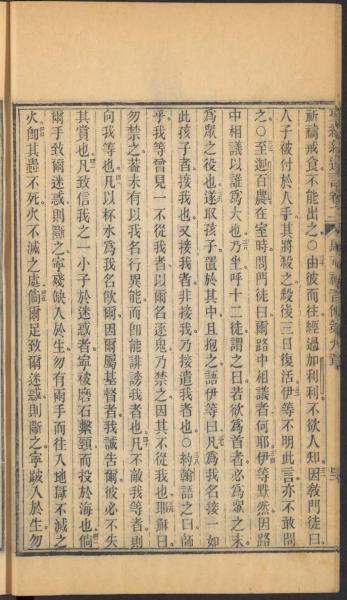 祈禱戒食不能出之○由彼而往經過加利利不欲人知因教門徒曰
人子被付於人手其將殺之殺後三日復活伊等不明此言亦不敢問
之○至迦百農在室時問門徒曰爾路中相議者何耶伊等默然因路
中相議以誰為大也乃坐呼十二徒謂之曰若欲為首者必為眾之末
為眾之役也遂取孩子置於其中且抱之語伊等曰凡為我名接一如
此孩子者接我也又接我者非接我乃接遣我者也○約翰語之曰師
乎我等曾見一不從我者以爾名逐鬼乃禁之因其不從我也耶穌曰
勿禁之蓋未有以我名行異能而即能誹謗我者也凡不敵我等者則
向我等也凡以杯水為我名飲爾因爾屬基督者我誠告爾彼必不失
其賞也凡致信我之一小子於迷惑者寧被磨石繫頸而投於海也倘
爾手致爾迷惑則斷之寧殘缺入於生勿有兩手而往入地獄不滅之
火即其蟲不死火不滅之處倘爾足致爾迷惑則斷之寧跛入於生勿